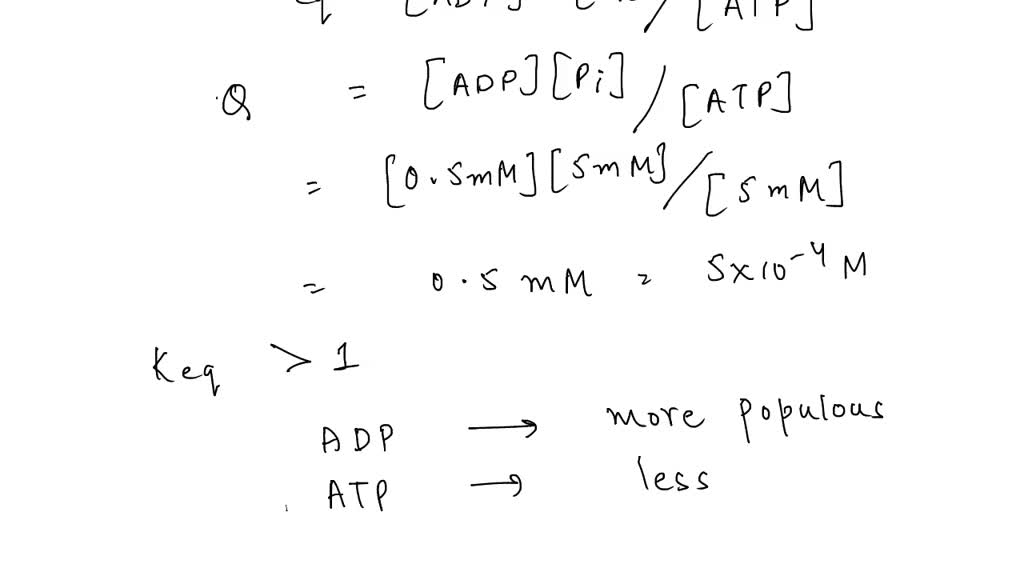 [ATP]
Q = [ADP][Pi]/[ATP]
= [0.5mM][5mM]/[5mM]
= 0.5 mM = 5x10-4 M
Keq > 1
ADP → more populous
ATP → less